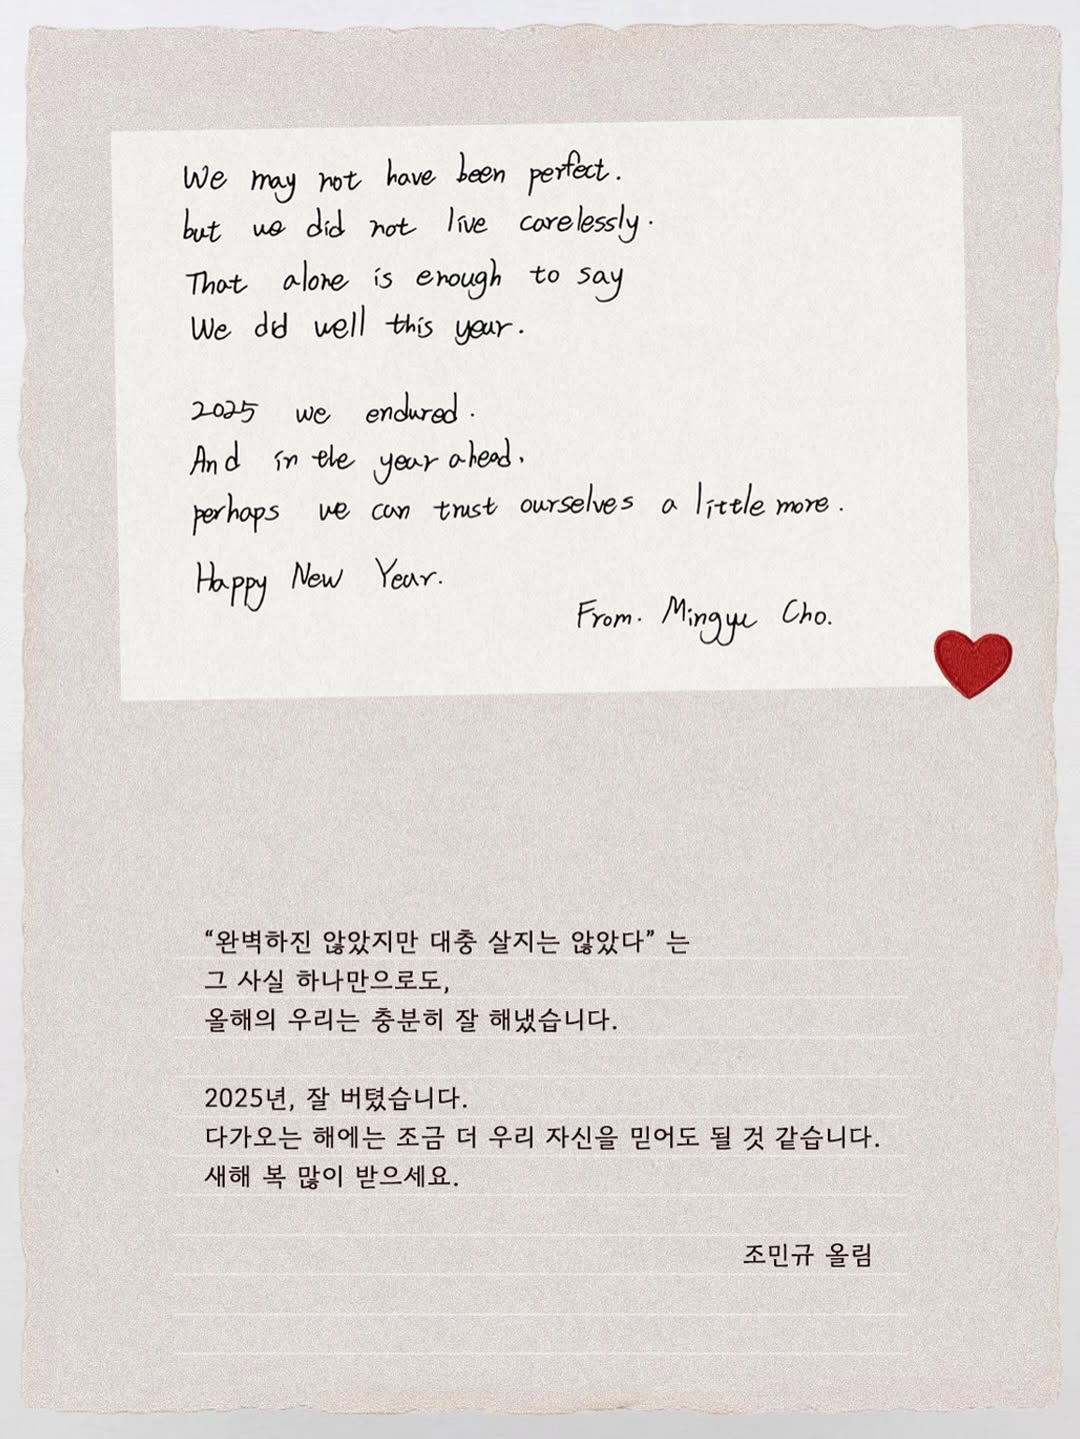 We may not have been perfect.
but we did not live carelessly.
That alone is enough to say
We did well this year.
2025 we endured.
And in the year ahead.
perhaps we can trust ourselves a little more.
Happy New Year.
From. Mingyu Cho.
“완벽하진 않았지만 대충 살지는 않았다” 는
그 사실 하나만으로도,
올해의 우리는 충분히 잘 해냈습니다.
2025년, 잘 버텼습니다.
다가오는 해에는 조금 더 우리 자신을 믿어도 될 것 같습니다.
새해 복 많이 받으세요.
조민규 올림